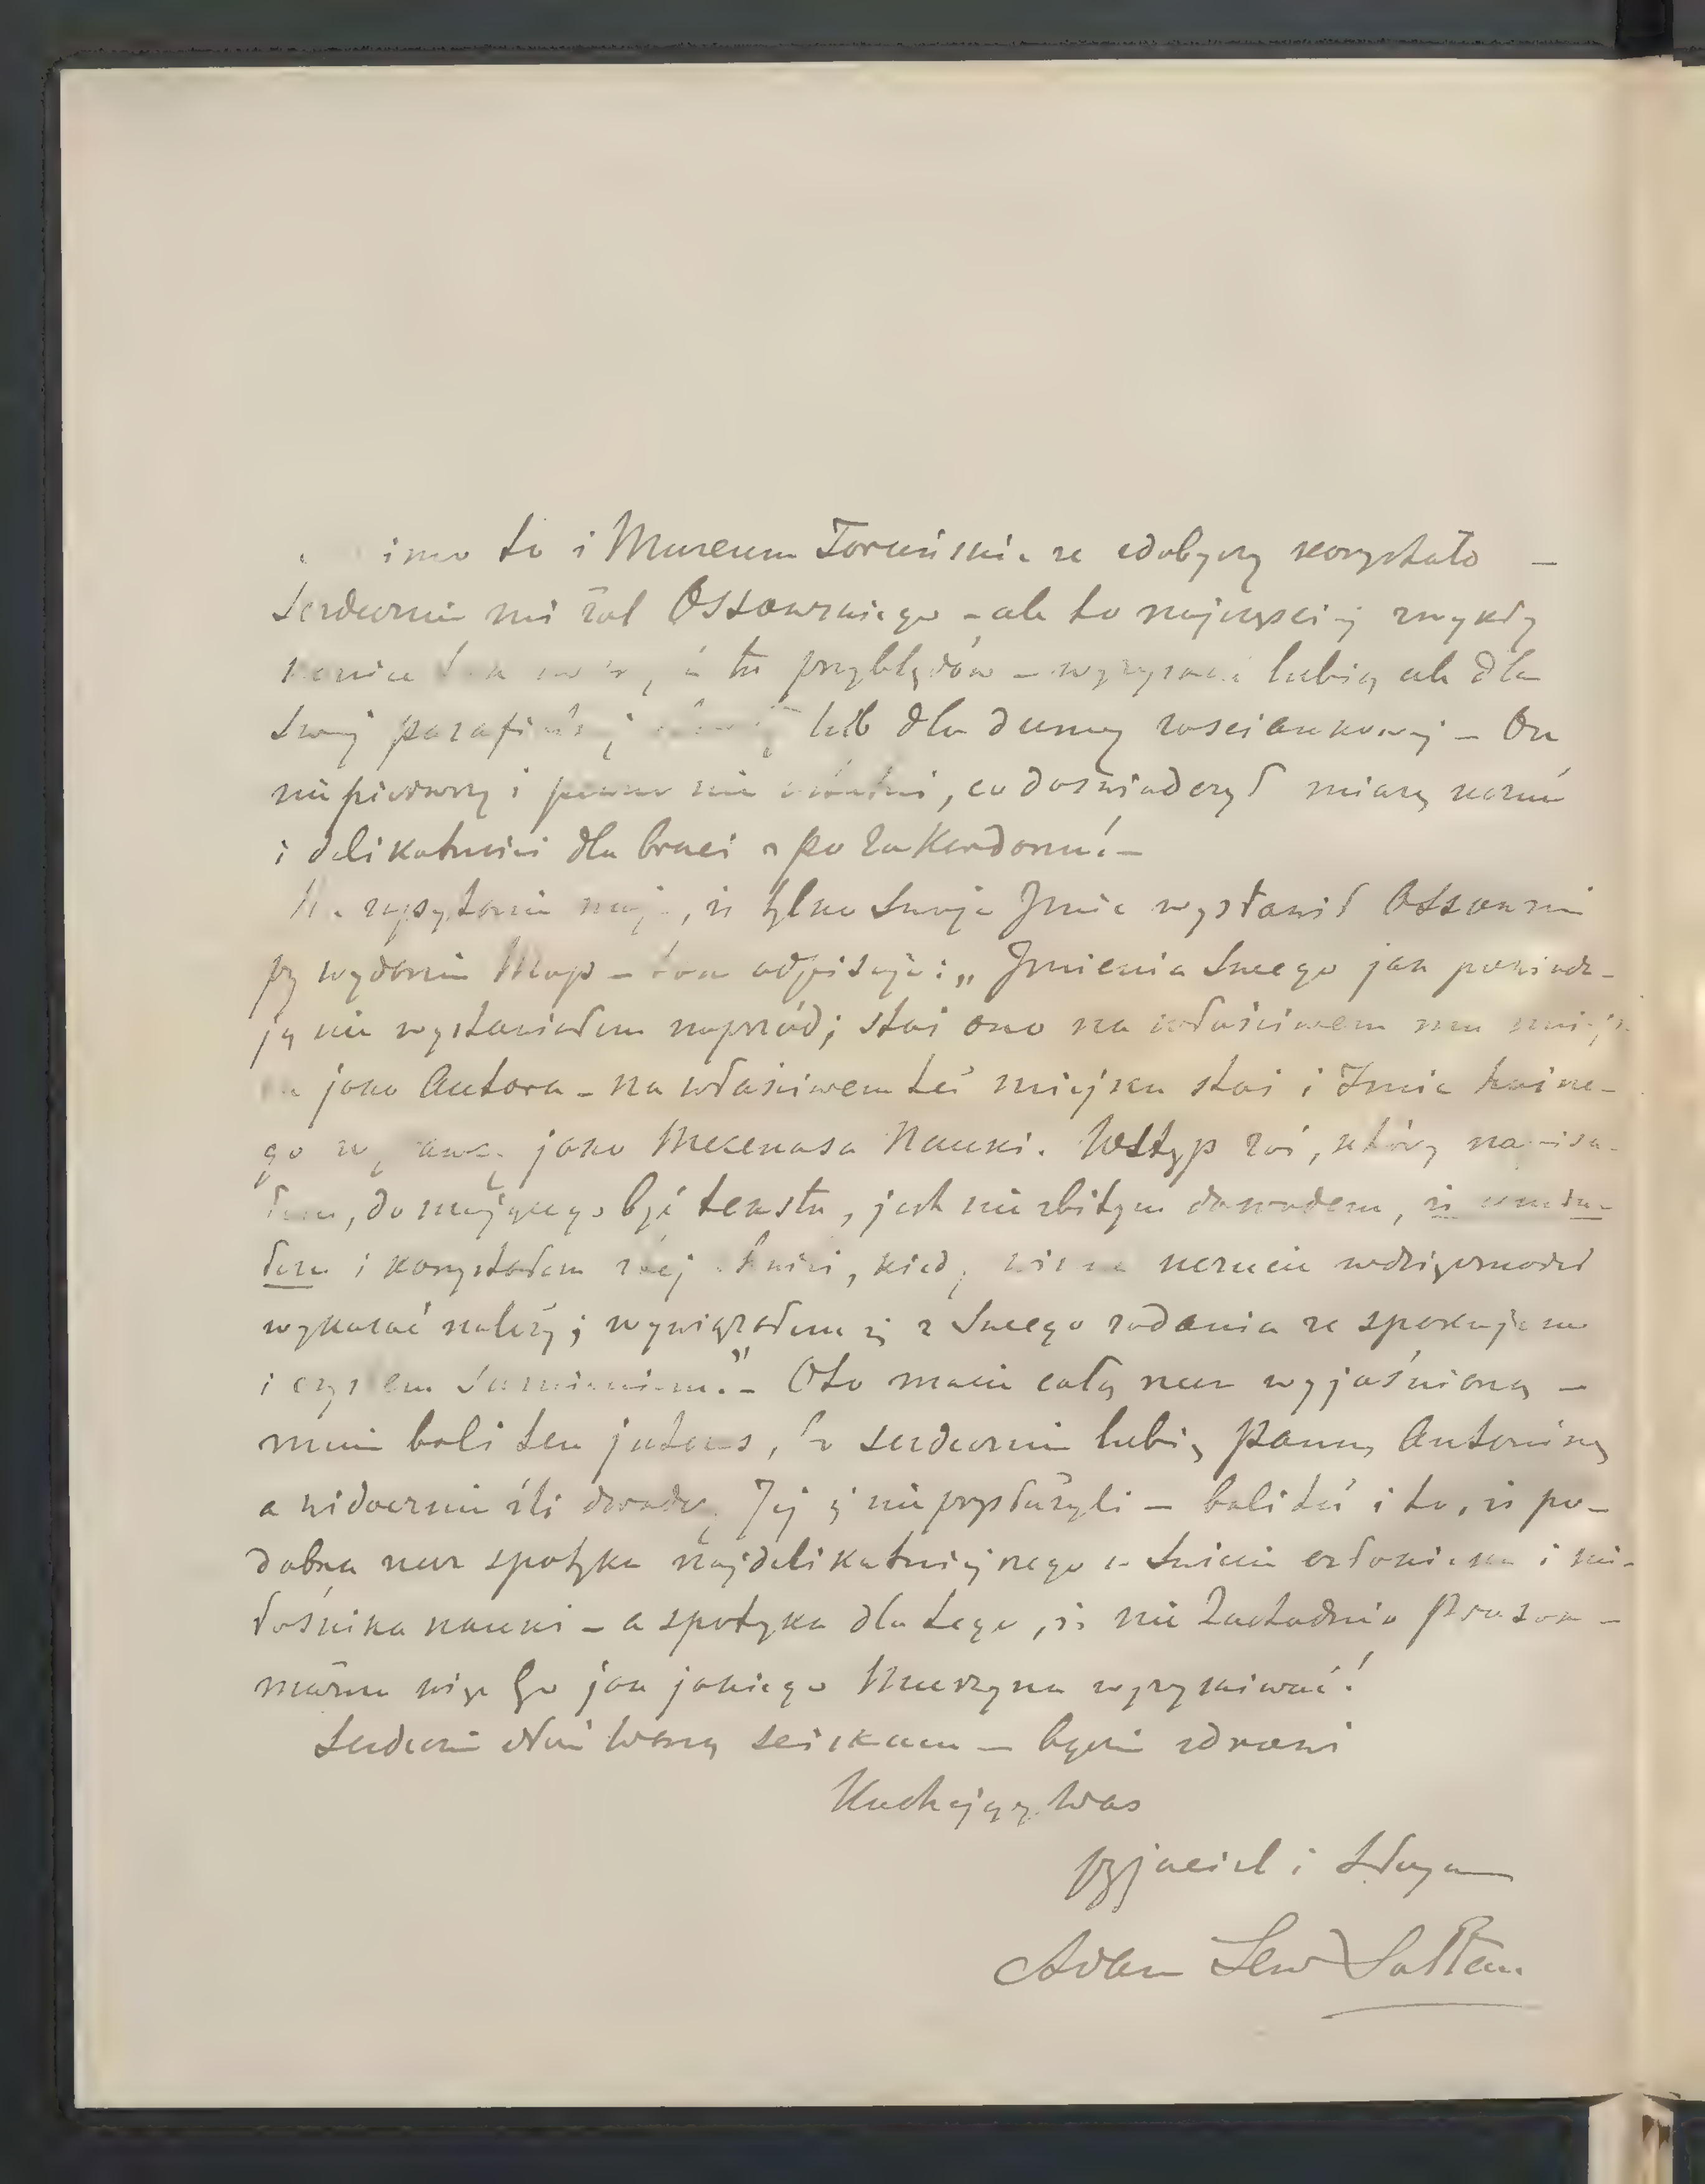 to i Muzeum Toruńskie ze zdobyczy korzystało —
Serdecznie mi żal Ossowskiego - ale to najczęściej zwykły
koniec , iż tu przybłędów - wyzyskać lubią ale dla
swej parafialnej lub dla dumy zaściankowej - On
nie pierwszy i pewno nie ostatni, co doświadczył miary uczuć
i delikatności dla braci z po za Kordonu! -
Na zapytanie moje, iż tylko swoje Imie wystawił Ossowski
przy wydaniu Map - tak odpisuje: „Imienia swego jak powiada-
ją nie wystawiałem naprzód; stoi ono na właściwem mu miejs-
cu jako Autora - na właściwem też miejscu stoi i Imie
go jako Mecenasa Nauki. Wstęp zaś, który napisa-
łem, do mającego być tekstu, jest niezbitym dowodem, iż
łem i korzystałem z tej , kiedy uczucie wdzięczności
wykazać należy; wywiązałem się z swego zadania ze spokojem
i czystem sumieniem." - Oto macie całą rzecz wyjaśnioną -
mnie boli ten , bo serdecznie lubię Pannę Antoninę
a widocznie źli Jej się nie przysłużyli - boli też i to, iż po-
dobna rzecz spotyka najdelikatniejszego w świecie człowieka i mi-
łośnika nauki - a spotyka dla tego, iż nie Zachodnio Prusak -
można więc Go jak jakiego Murzyna wyzyskiwać!
Serdecznie dłoń Waszą ściskam - bądźcie zdrowi
Kochający Was
przyjaciel i sługa
Adam Lew Sołtan